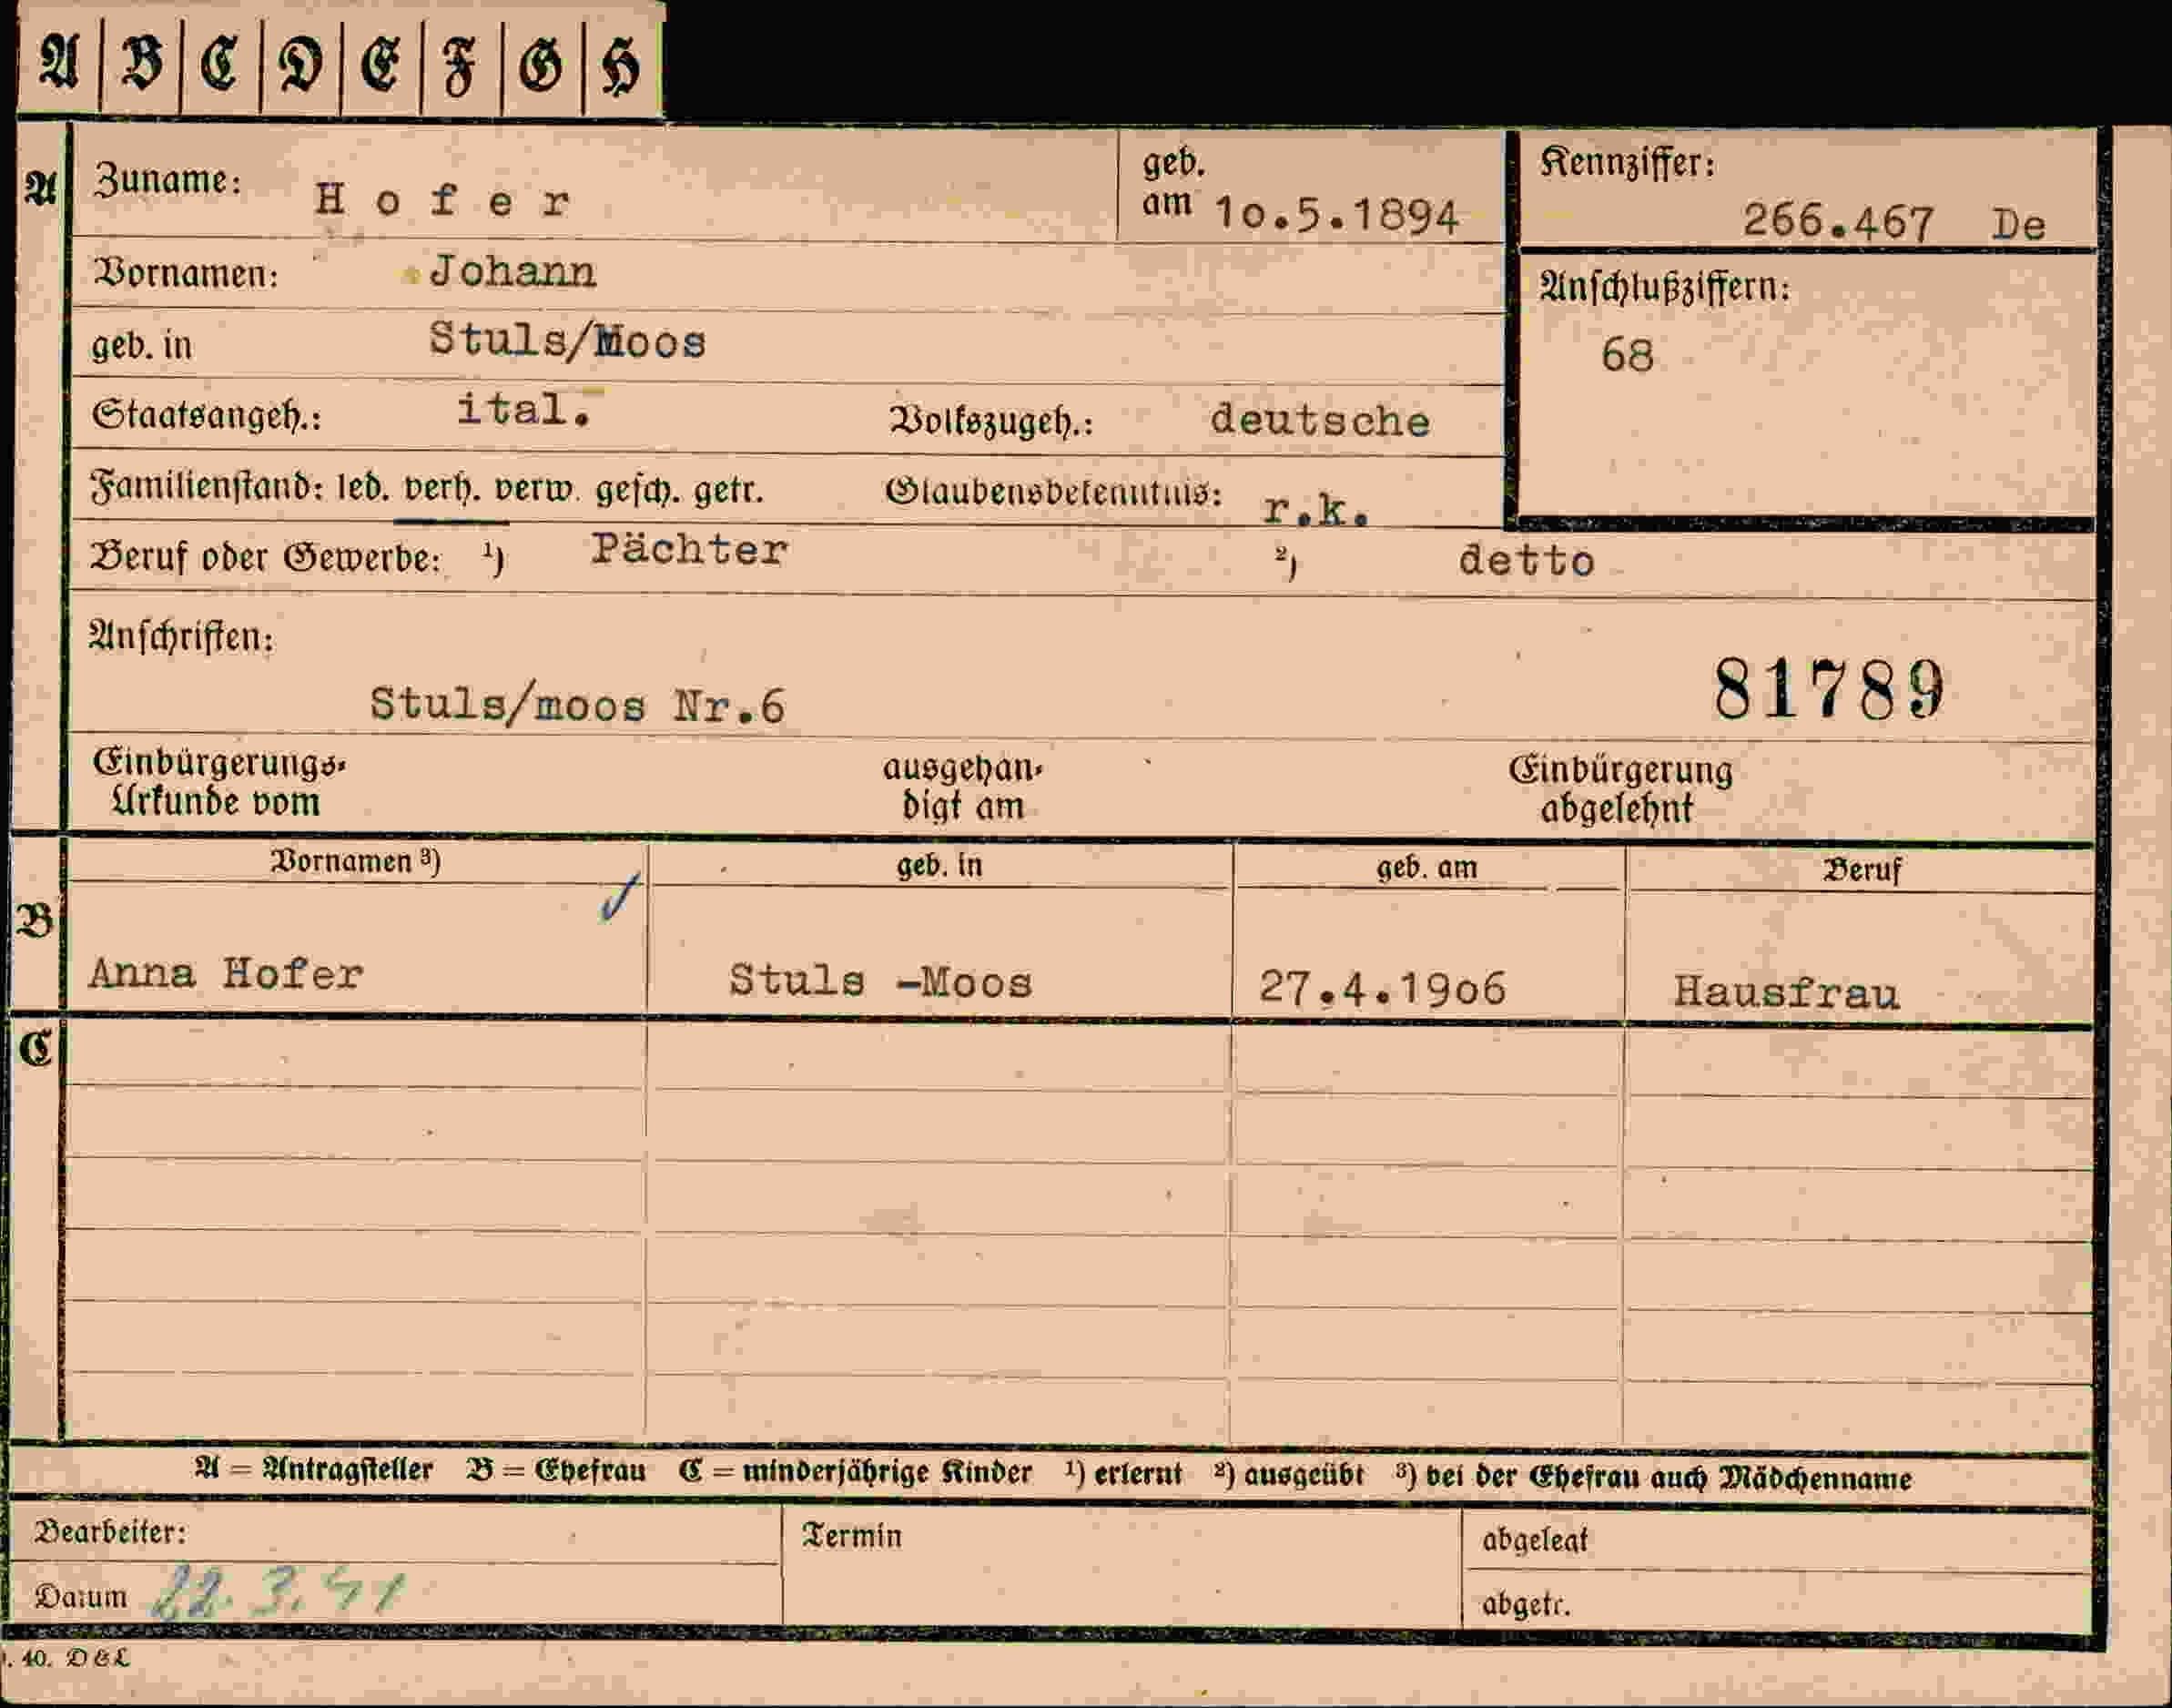 A B C D E F G H
A Zuname: Hofer geb. am 10.5.1894 Kennziffer: 266.467 De
Vornamen: Johann Anschlußziffern:
geb. in Stuls/Moos 68
Staatsangeh.: ital. Volkszugeh.: deutsche
Familienstand: led. verh. verw. gesch. getr. Glaubensbekenntnis: r.k.
Beruf oder Gewerbe: ¹) Pächter ²) detto
Anschriften:
Stuls/moos Nr.6 81789
Einbürgerungs- ausgehän- Einbürgerung
Urkunde vom digt am abgelehnt
Vornamen ³) geb. in geb. am Beruf
B
Anna Hofer Stuls -Moos 27.4.1906 Hausfrau
C
A = Antragsteller B = Ehefrau C = minderjährige Kinder ¹) erlernt ²) ausgeübt ³) bei der Ehefrau auch Mädchenname
Bearbeiter: Termin abgelegt
Datum 22.3.41 abgetr.
. 40. D & L